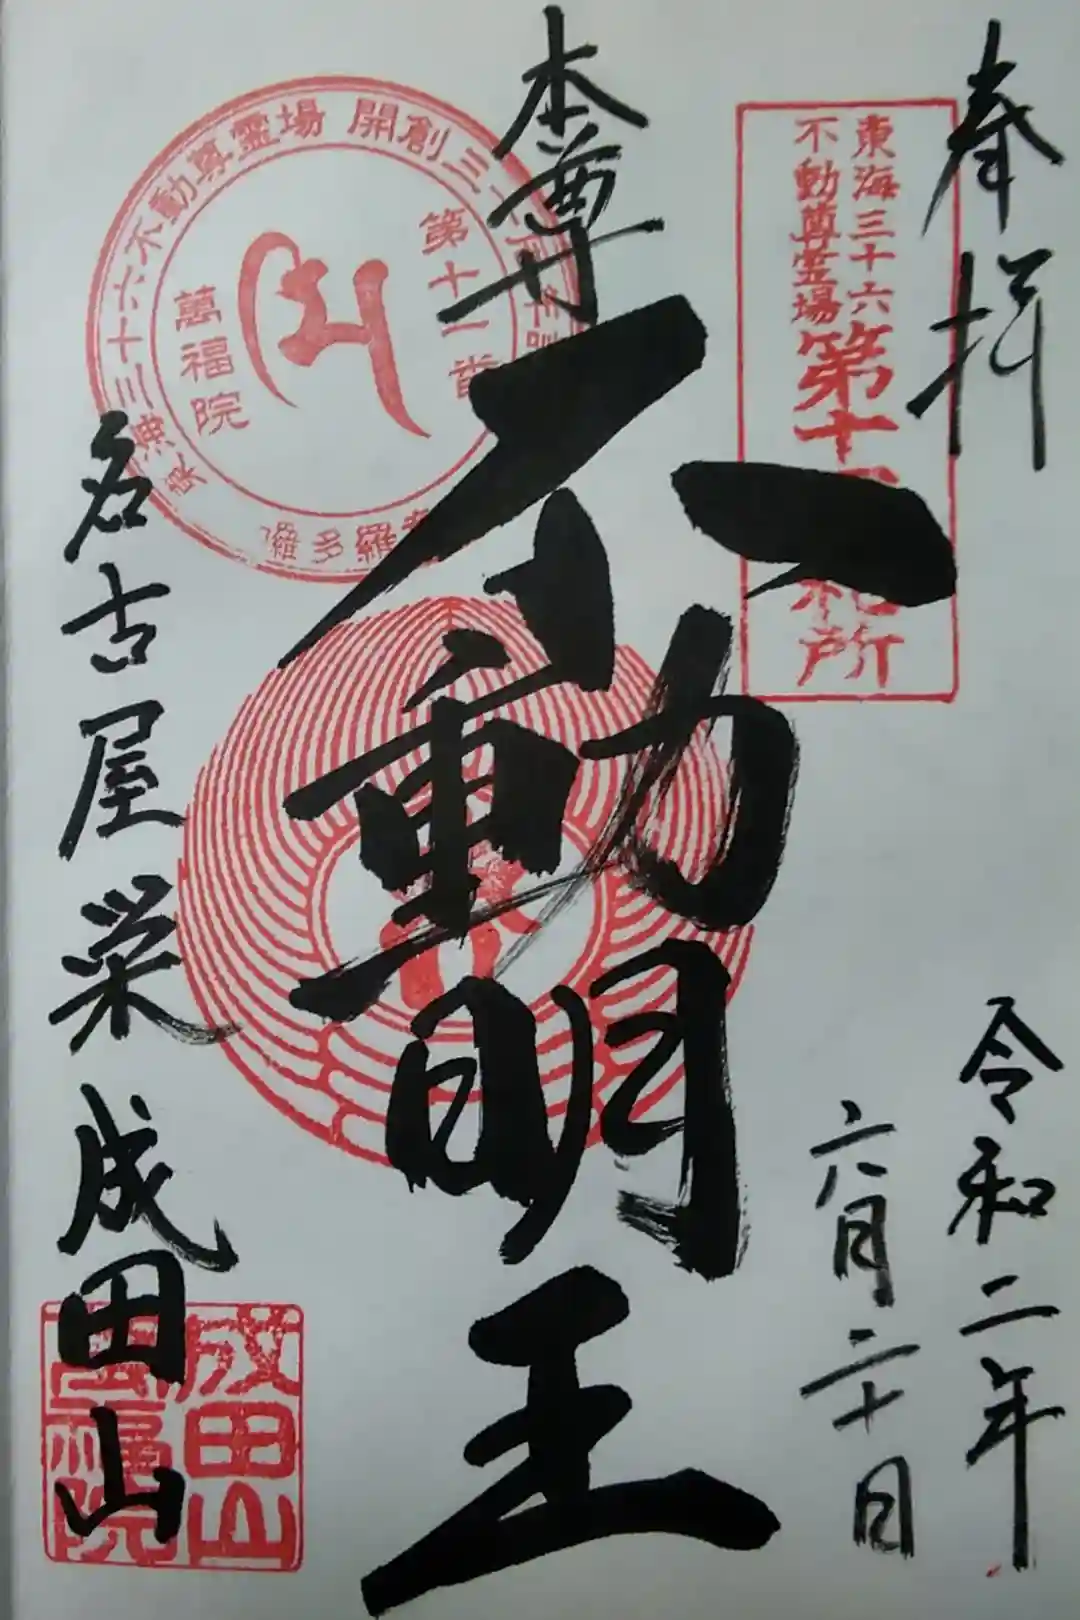 奉拝
令和二年
六月二十日
東海三十六
不動尊霊場
第十 札所
本尊
不動明王
東海三十六不動尊霊場 開創三十周年記
第十一番
萬福院
多羅
名古屋栄 成田山
成田山
萬福院